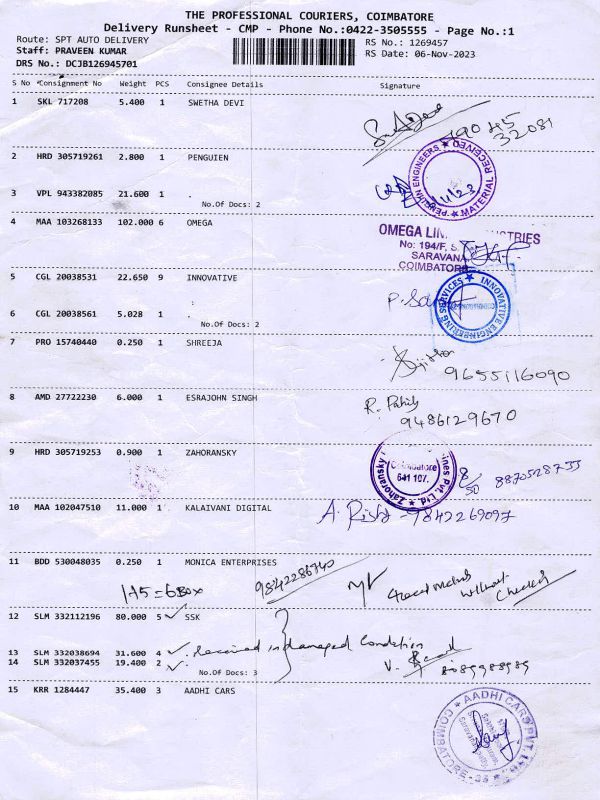 THE PROFESSIONAL COURIERS, COIMBATORE
Delivery Runsheet - CMP - Phone No.:0422-3505555 - Page No.:1
Route: SPT AUTO DELIVERY
RS No.: 1269457
Staff: PRAVEEN KUMAR
RS Date: 06-Nov-2023
DRS No.: DCJB126945701
S No Consignment No Weight PCS Consignee Details Signature
1 SKL 717208 5.400 1 SWETHA DEVI
2 HRD 305719261 2.800 1 PENGUIEN
PENGUIN ENGINEERS ★ MATERIAL RECEIVED ★
3 VPL 943382085 21.600 1 .
No.Of Docs: 2
4 MAA 103268133 102.000 6 OMEGA
OMEGA
No: 194/F,
SARAVANA
COIMBATORE
5 CGL 20038531 22.650 9 INNOVATIVE
INNOVATIVE ENGINEERING SERVICES ★
6 CGL 20038561 5.028 1 .
No.Of Docs: 2
7 PRO 15740440 0.250 1 SHREEJA
9655116090
8 AMD 27722230 6.000 1 ESRAJOHN SINGH
9486129670
9 HRD 305719253 0.900 1 ZAHORANSKY
Zahoransky Pvt. Ltd
Coimbatore
641 107.
10 MAA 102047510 11.000 1 KALAIVANI DIGITAL
9842269097
11 BDD 530048035 0.250 1 MONICA ENTERPRISES
9842286740
Without Checked
12 SLM 332112196 80.000 5 SSK
13 SLM 332038694 31.600 4 .
Received in damaged Condition
14 SLM 332037455 19.400 2 .
No.Of Docs: 3
8089988989
15 KRR 1284447 35.400 3 AADHI CARS
★ AADHI CARS PVT. LTD ★ COIMBATORE